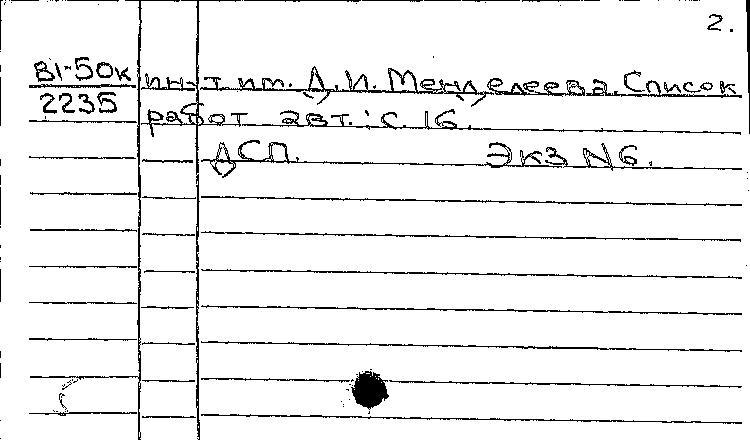 2.
81-50к ин-т им. Д. И. Менделеева. Список
2235 работ авт.: с. 16.
ДСП. Экз N6.